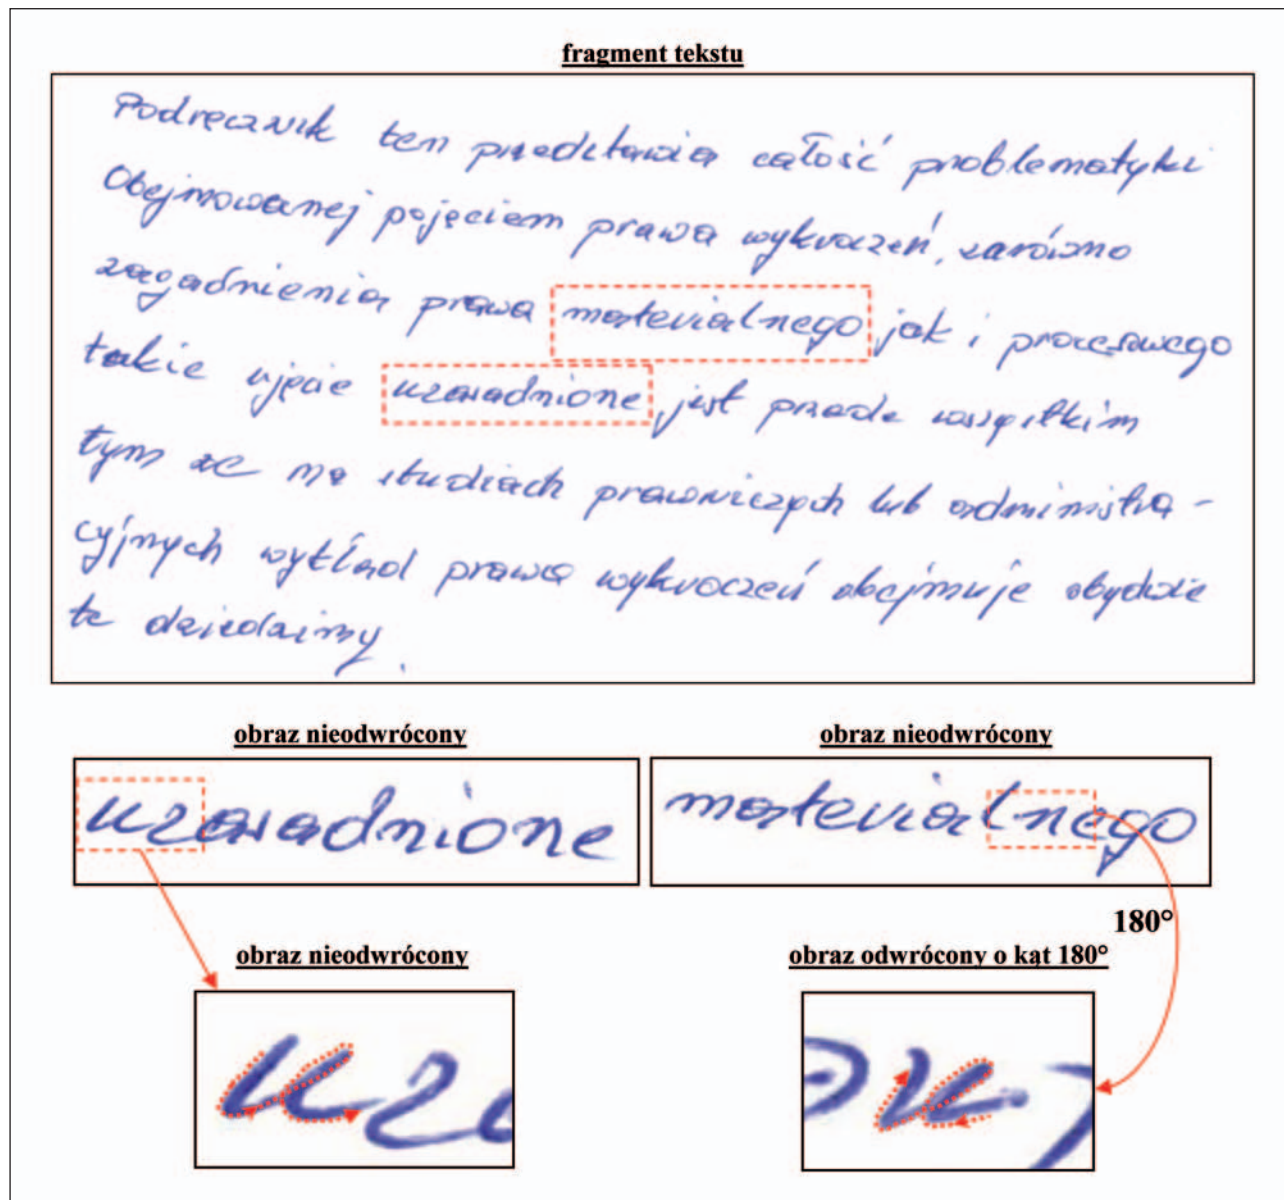 fragment tekstu
Podręcznik ten przedstawia całość problematyki
Obejmowanej pojęciem prawa wykroczeń, zarówno
zagadnienia prawa materialnego jak i procesowego
takie ujęcie uzasadnione jest przede wszystkim
tym że na studiach prawniczych lub administra-
cyjnych wykład prawa wykroczeń obejmuje obydwie
te dziedziny.
obraz nieodwrócony
obraz nieodwrócony
uzasadnione
materialnego
180°
obraz nieodwrócony
obraz odwrócony o kąt 180°
uz